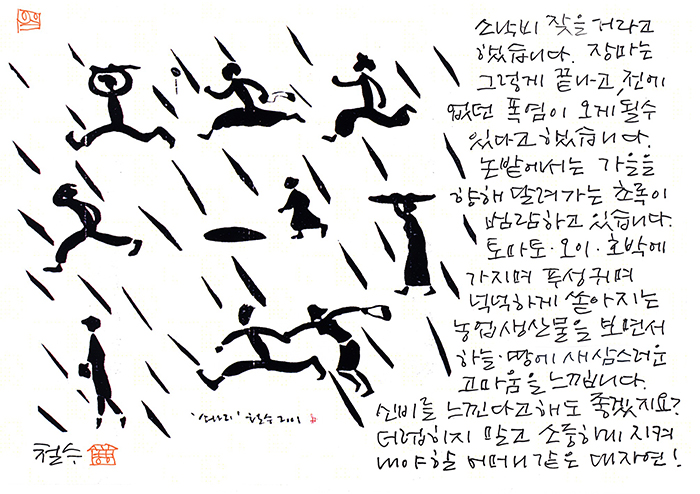 소낙비 잦을 거라고
했습니다. 장마는
그렇게 끝나고, 전에
없던 폭염이 오게 될 수
있다고 했습니다.
논밭에서는 가을을
향해 달려가는 초록이
범람하고 있습니다.
토마토·오이·호박에
가지며 푸성귀며
넉넉하게 쏟아지는
농업생산물을 보면서
하늘·땅에 새삼스러운
고마움을 느낍니다.
신비를 느낀다고 해도 좋겠지요?
더럽히지 말고 소중하게 지켜
내야 할 어머니 같은 대자연!
'소나기' 철수 2001
철수